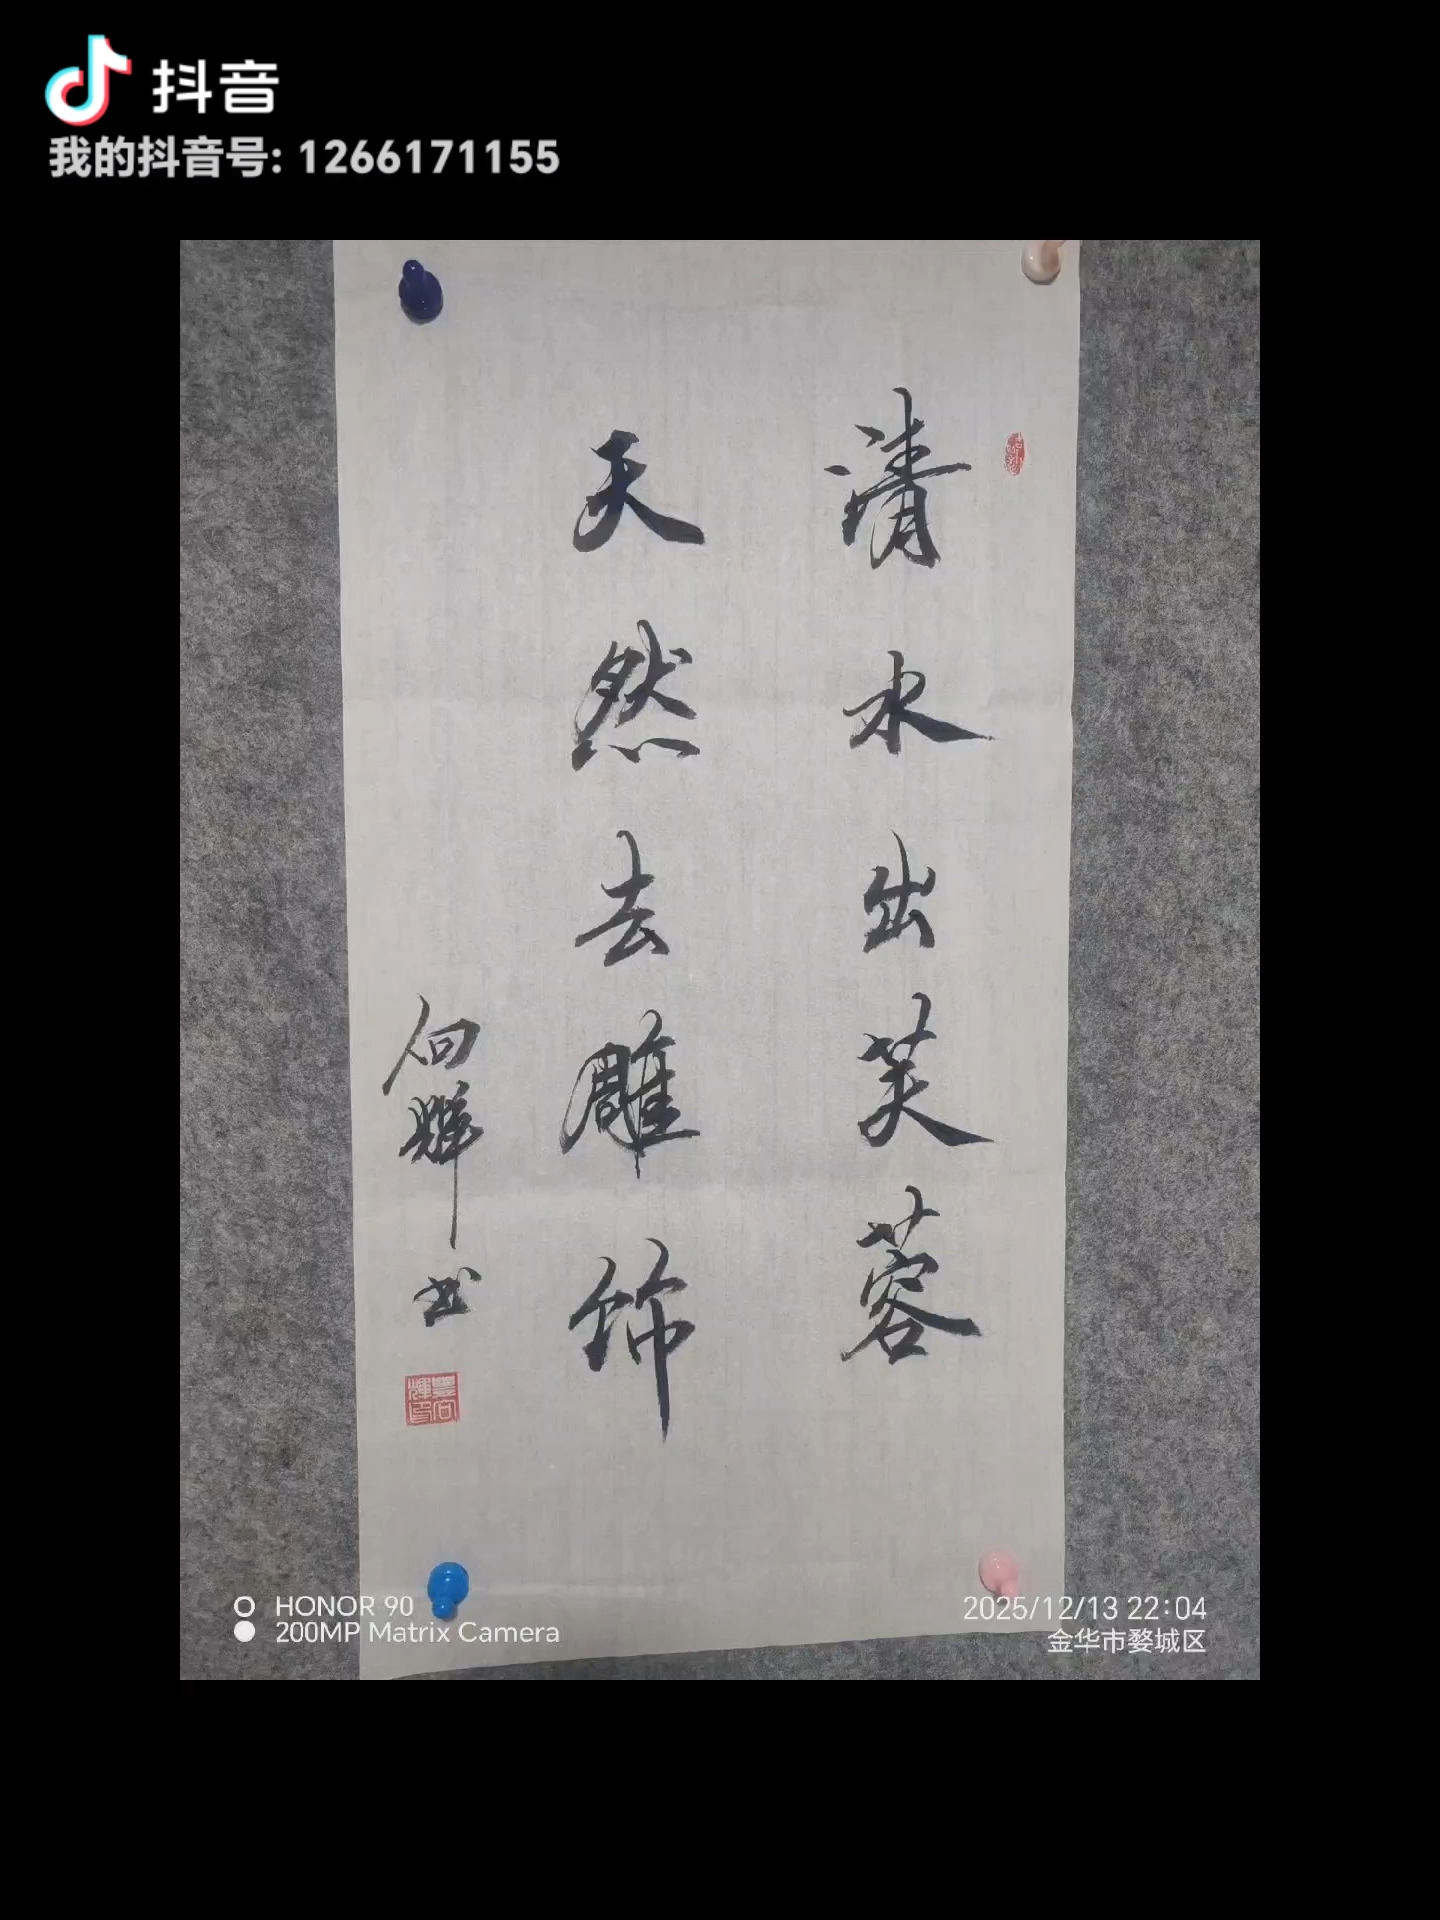 抖音
我的抖音号: 1266171155
清水出芙蓉
天然去雕饰
向辉书
HONOR 90
200MP Matrix Camera
2025/12/13 22:04
金华市婺城区